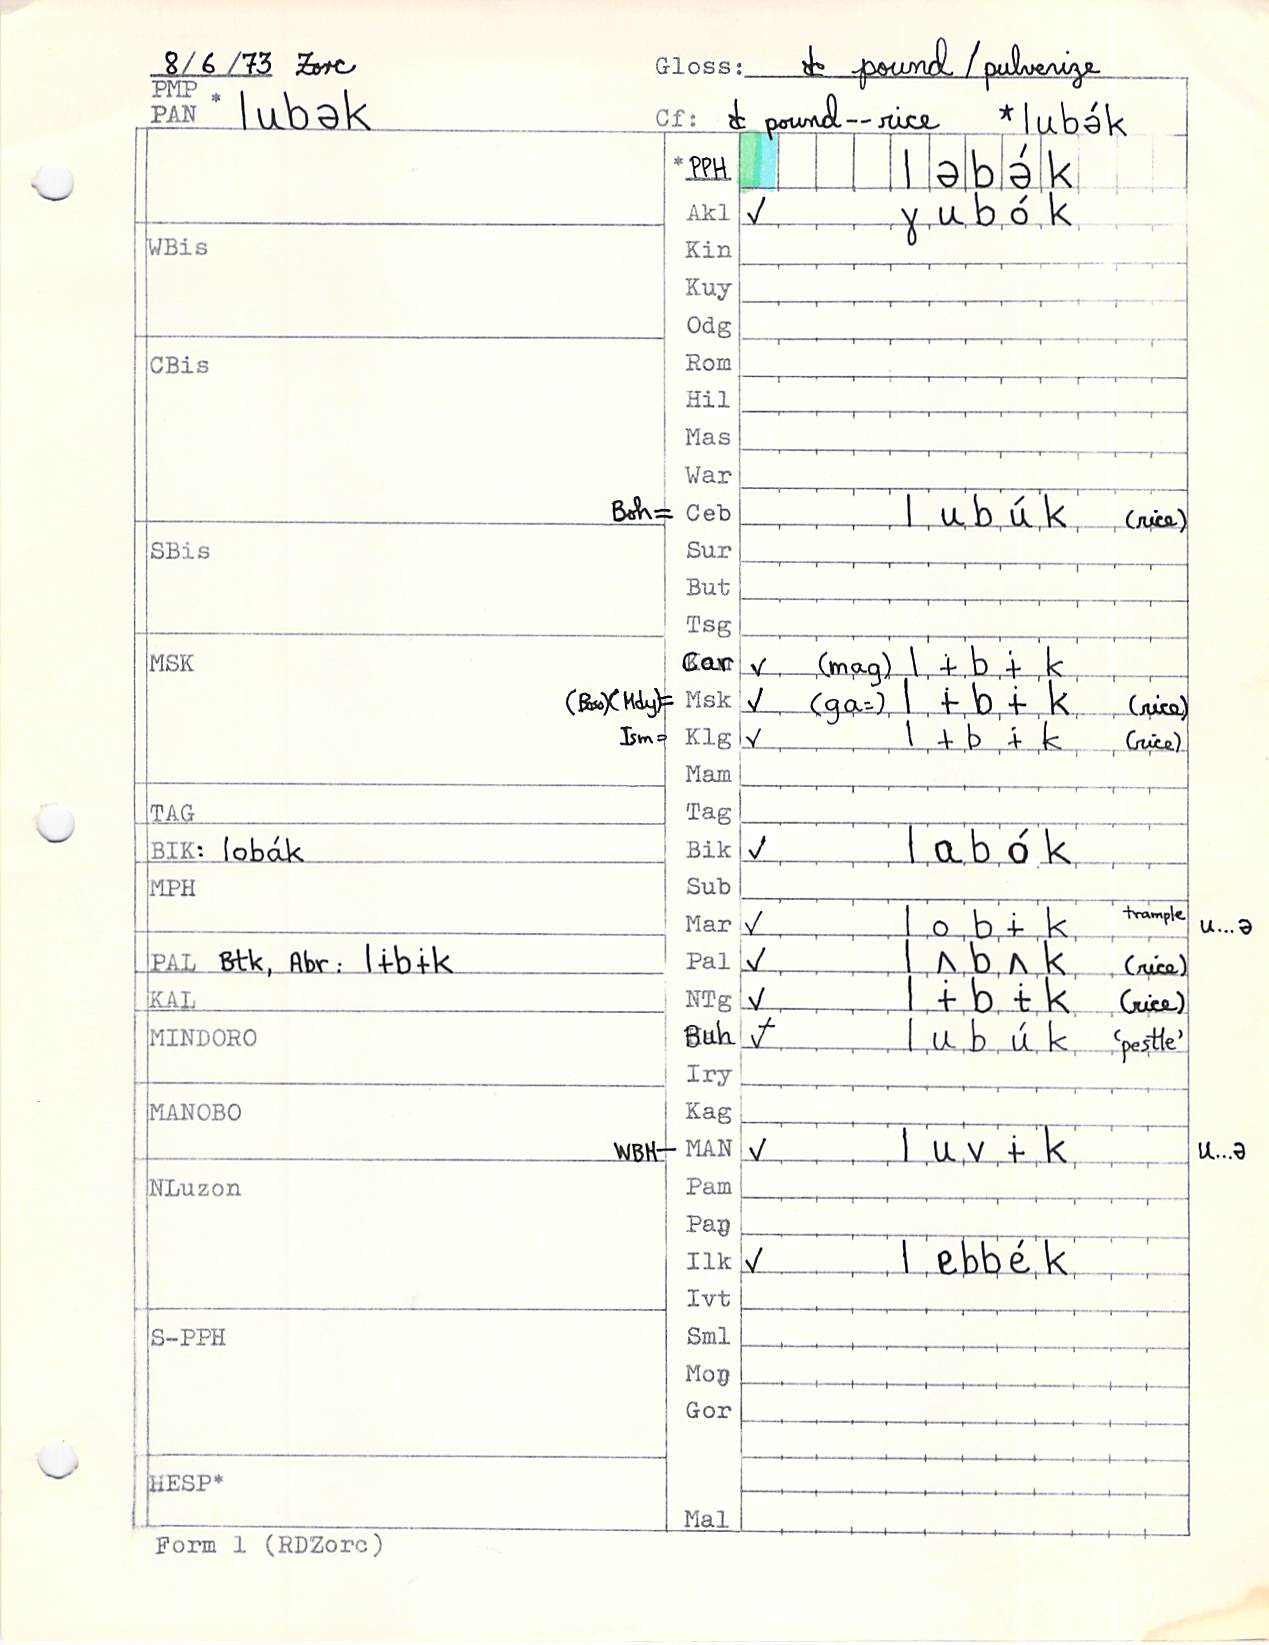 8/6/73 Zorc Gloss: to pound/pulverize
PMP
PAN * lubək Cf: to pound--rice *lubə́k
*PPH ləbə́k
Akl ✓ ɣubók
WBis Kin
Kuy
Odg
CBis Rom
Hil
Mas
War
Boh= Ceb lubúk (rice)
SBis Sur
But
Tsg
MSK Car ✓ (mag) lɨbɨk
(Mdy)= Msk ✓ (ga=) lɨbɨk (rice)
Ism= Klg ✓ lɨbɨk (rice)
Mam
TAG Tag
BIK: lobák Bik ✓ labók
MPH Sub
Mar ✓ lobɨk trample u...ə
PAL Btk, Abr: lɨbɨk Pal ✓ lʌbʌk (rice)
KAL NTg ✓ lɨbɨk (rice)
MINDORO Buh ✓ lubúk 'pestle'
Iry
MANOBO Kag
WBM— MAN ✓ luvɨk u...ə
NLuzon Pam
Paŋ
Ilk ✓ lebbék
Ivt
S-PPH Sml
Moŋ
Gor
HESP*
Mal
Form 1 (RDZorc)